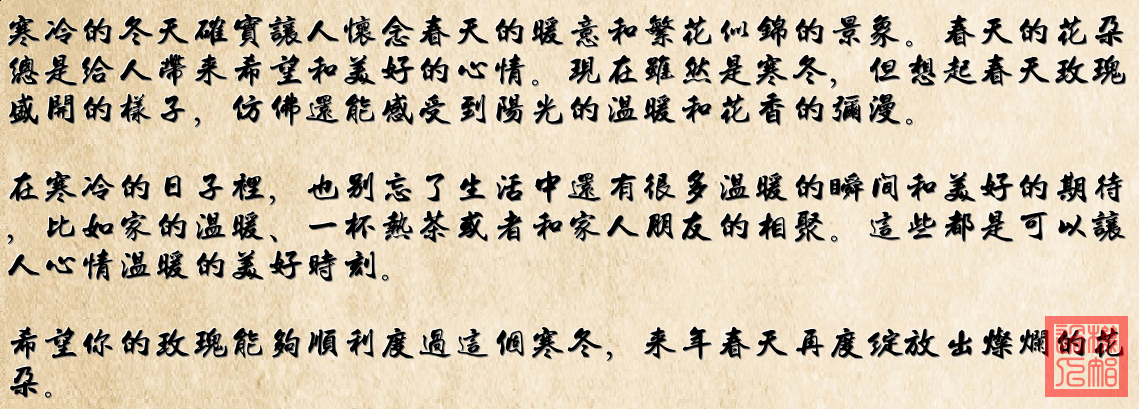 寒冷的冬天確實讓人懷念春天的暖意和繁花似錦的景象。春天的花朵
總是給人帶來希望和美好的心情。現在雖然是寒冬，但想起春天玫瑰
盛開的樣子，仿佛還能感受到陽光的溫暖和花香的彌漫。
在寒冷的日子裡，也別忘了生活中還有很多溫暖的瞬间和美好的期待
，比如家的溫暖、一杯熱茶或者和家人朋友的相聚。這些都是可以讓
人心情溫暖的美好時刻。
希望你的玫瑰能夠順利度過這個寒冬，来年春天再度綻放出燦爛的花
朵。